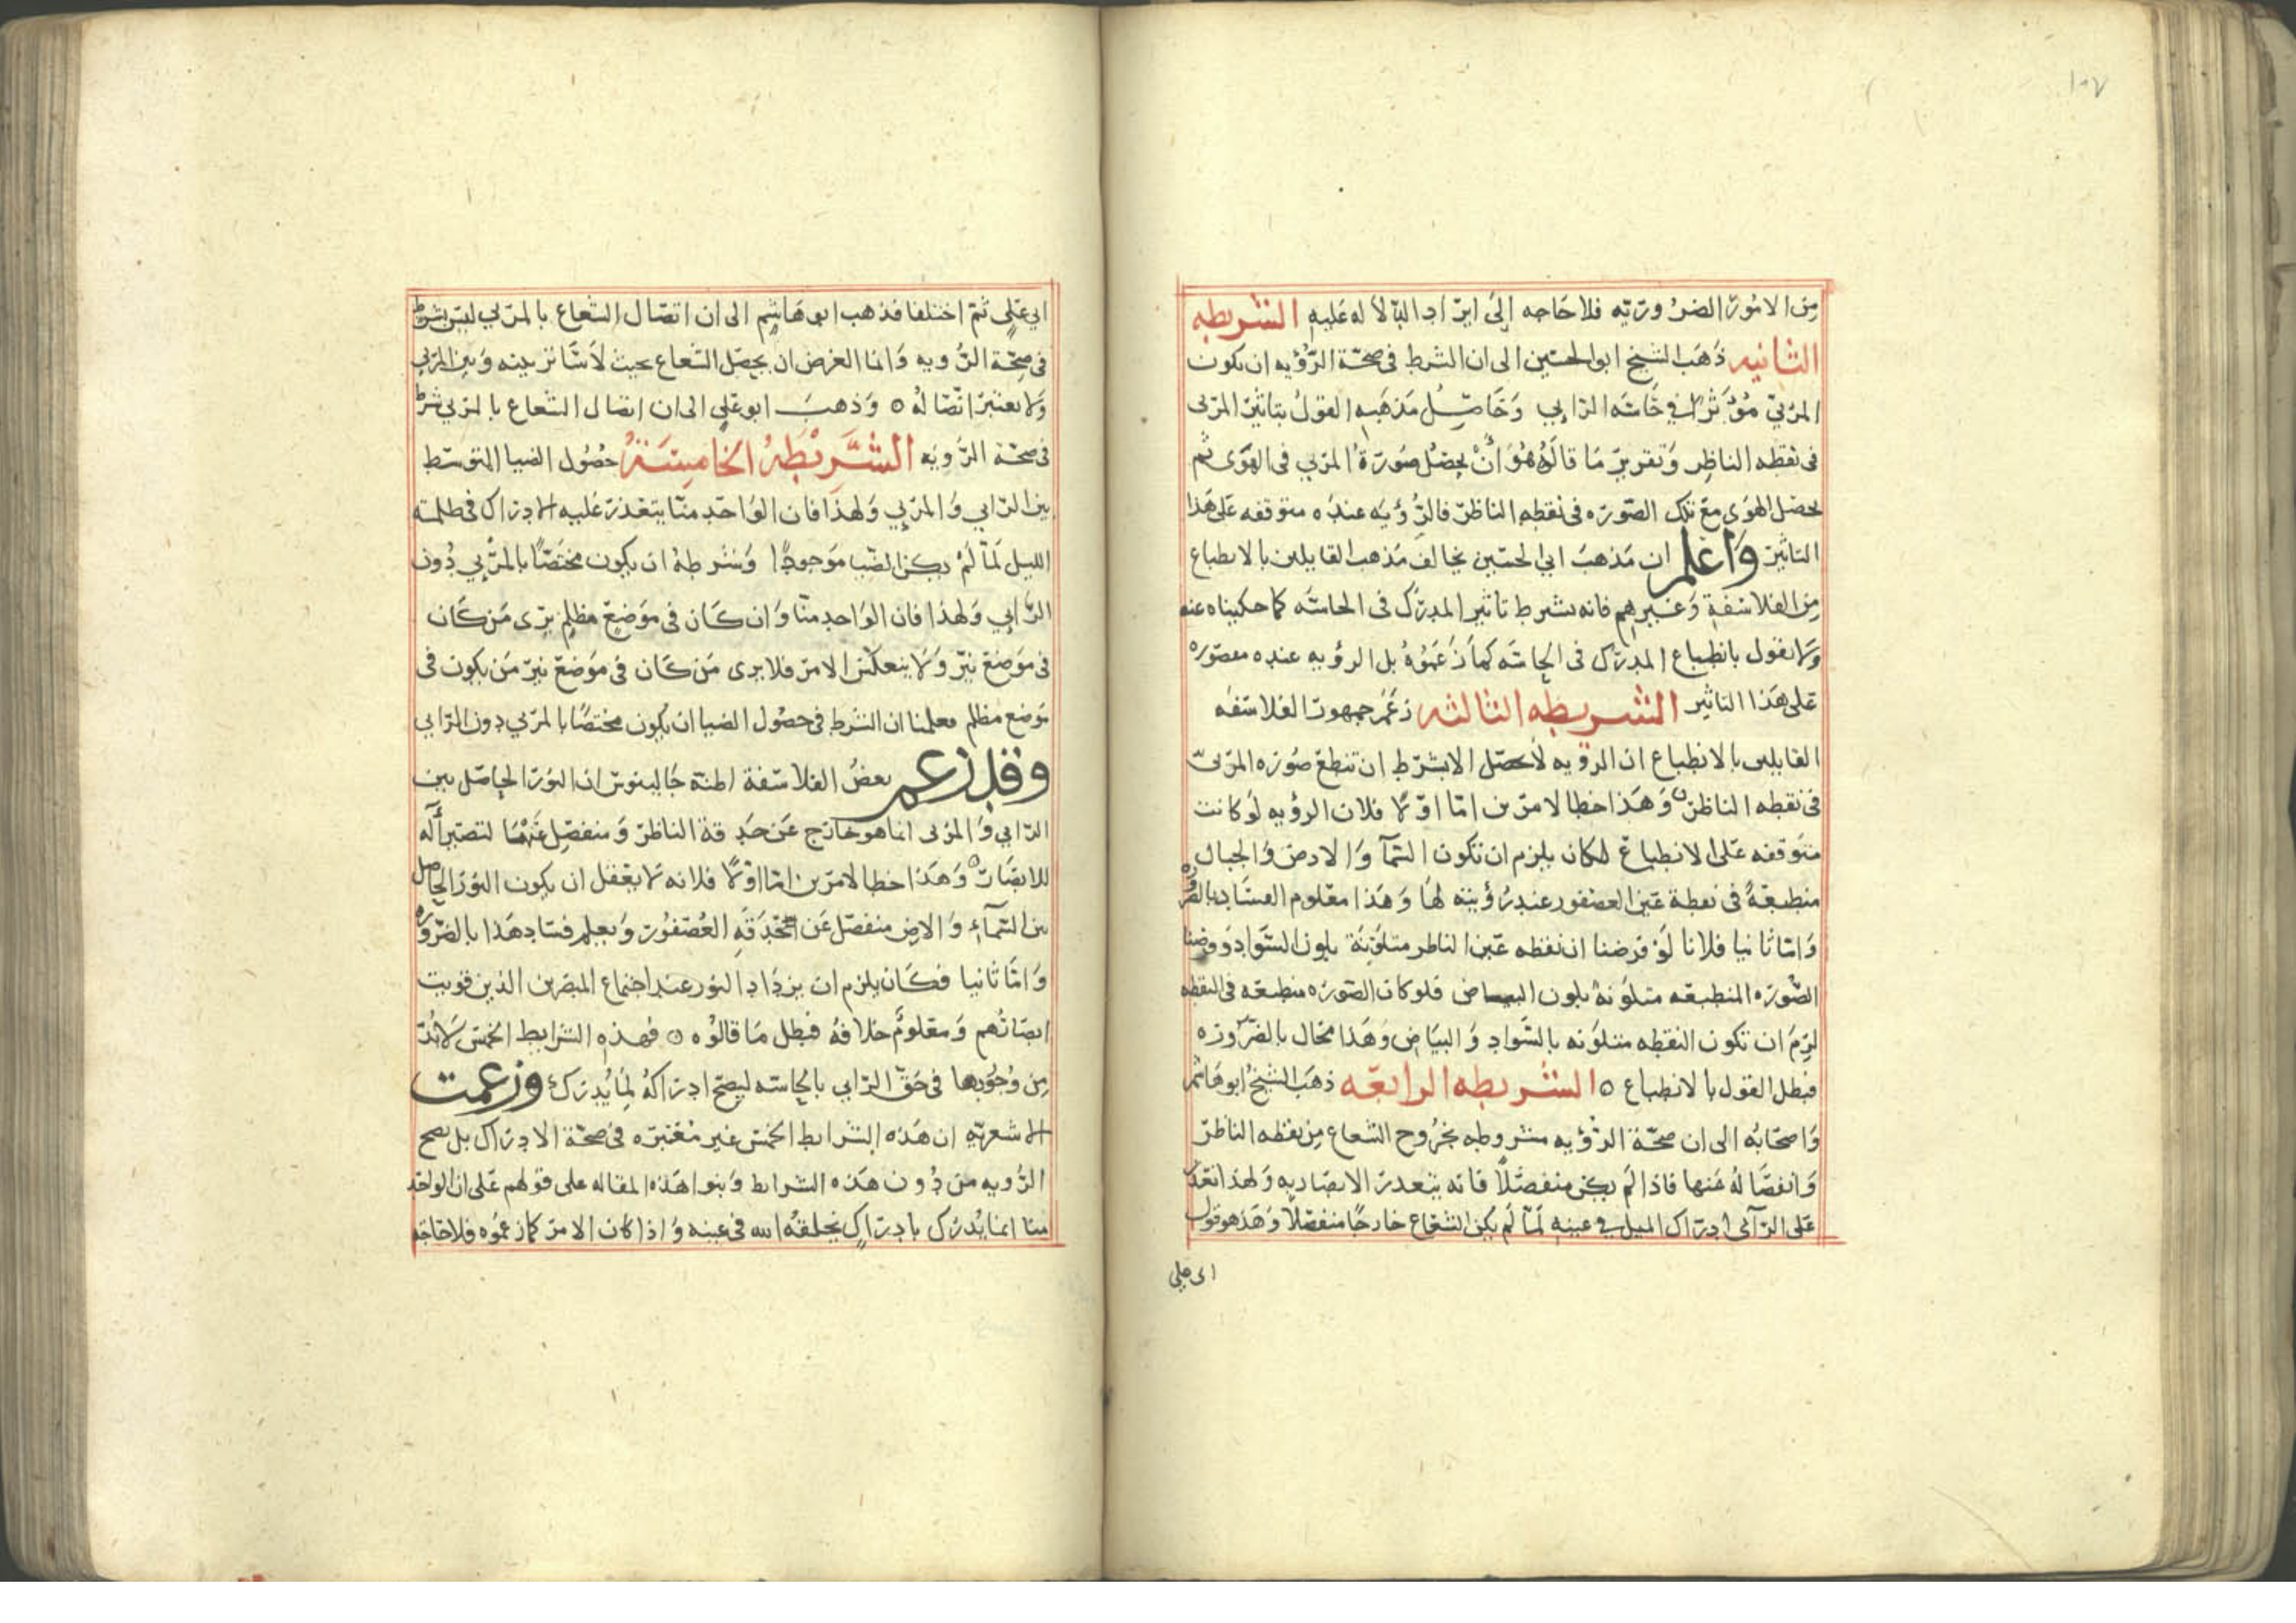 ١٠٧
من الامور الضروريه فلا حاجه إلى ايراد الدلاله عليه الشريطه
الثانيه ذهب الشيخ ابو الحسين الى ان الشرط فى صحة الرؤيه ان يكون
المرئي مؤثرا في حاسه الرايي وحاصل مذهبه القول بتاثير المرئى
فى نقطه الناظر وتقرير ما قالوه هو أن يحصل صورة المرئي فى الهوى ثم
يحصل الهوى مع تلك الصوره فى نقطه الناظر فالرؤيه عنده متوقفه على هذا
التاثير واعلم ان مذهب ابي الحسين يخالف مذهب القايلين بالانطباع
من الفلاسفة وغيرهم فانه يشرط تاثير المدرك فى الحاسه كما حكيناه عنه
ولا يقول بانطباع المدرك فى الحاسه كما زعموه بل الرؤيه عنده مقصوره
على هذا التاثير الشريطه الثالثه زعم جمهور الفلاسفه
القايلين بالانطباع ان الرؤيه لا تحصل الا بشرط ان تنطبع صوره المرئى
فى نقطه الناظر وهذا خطا لامرين امّا اوّلا فلان الرؤيه لو كانت
متوقفه على الانطباع لكان يلزم ان تكون السّمآ والارض والجبال
منطبعة فى نقطة عين العصفور عند رؤيته لها وهذا معلوم الفساد بالضروره
وامّا ثانيا فلانا لو فرضنا ان نقطه عين الناظر متلونة بلون السواد وفرضنا
الصّوره المنطبعه متلونة بلون البياض فلو كان الصّوره منطبعه فى النقطه
لزم ان تكون النقطه متلونه بالسّواد والبياض وهذا محال بالضروره
فبطل القول بالانطباع ٥ الشريطه الرابعه ذهب الشيخ ابو هاشم
واصحابه الى ان صحّة الرؤيه مشروطه بخروح الشعاع من نقطه الناظر
وانفصاله عنها فاذا لم يكن منفصلا فانه يتعذر الابصار به ولهذا تعذر
على الرآئى ادراك الميل في عينه لمّا لم يكن الشعاع خارجًا منفصلا وهذا هو قول
اى على
ابي على ثمّ اختلفا فذهب ابو هاشم الى ان اتصال الشعاع بالمرئي ليس بشرط
فى صحّة الرؤيه وانما الغرض ان يحصل الشعاع بحيث لا ساتر بينه وبين المرئي
ولا يعتبر اتّصاله ٥ وذهب ابو علي الى ان اتصال الشعاع بالمرئي شرط
فى صحّة الرؤيه الشريطه الخامسة حصول الضيا المتوسّط
بين الرايي والمرئي ولهذا فان الواحد منّا يتعذر عليه الادراك فى ظلمة
الليل لمّا لم يكن الضيا موجودًا وشرطه ان يكون مختصّا بالمرئي دون
الرّايي ولهذا فان الواحد منّا وان كان فى موضع مظلم يرى من كان
فى موضع نيّر ولا ينعكس الامر فلا يرى من كان فى موضع نيّر من يكون فى
موضع مظلم فعلمنا ان الشرط فى حصول الضيا ان يكون مختصّا بالمرئي دون الرايي
وقد زعم بعض الفلاسفة اظنة جالينوس ان النور الحاصل بين
الرّايي والمرئى انما هو خارج عن حدقة الناظر ومنفصل عنها لتصير آله
للابصار وهذا خطا لامرين امّا اوّلا فلانه لا يعقل ان يكون النور الحاصل
بين السّمآء والارض منفصل عن حدقه العصفور ويعلم فساد هذا بالضروره
وامّا ثانيا فكان يلزم ان يزداد النور عند اجتماع المبصرين الذين قويت
ابصارهم ومعلوم خلافه فبطل ما قالوه ٥ فهذه الشرايط الخمس لا بدّ
من وجودها فى حقّ الرايي بالحاسه ليصحّ ادراكه لما يدركه وزعمت
الاشعريه ان هذه الشرايط الخمس غير معتبره فى صحّة الادراك بل يصح
الرّؤيه من دون هذه الشرايط وبنوا هذه المقاله على قولهم على ان الواحد
منا انما يدرك بادراك يخلقه الله فى عينه واذا كان الامر كما زعموه فلا حاجه